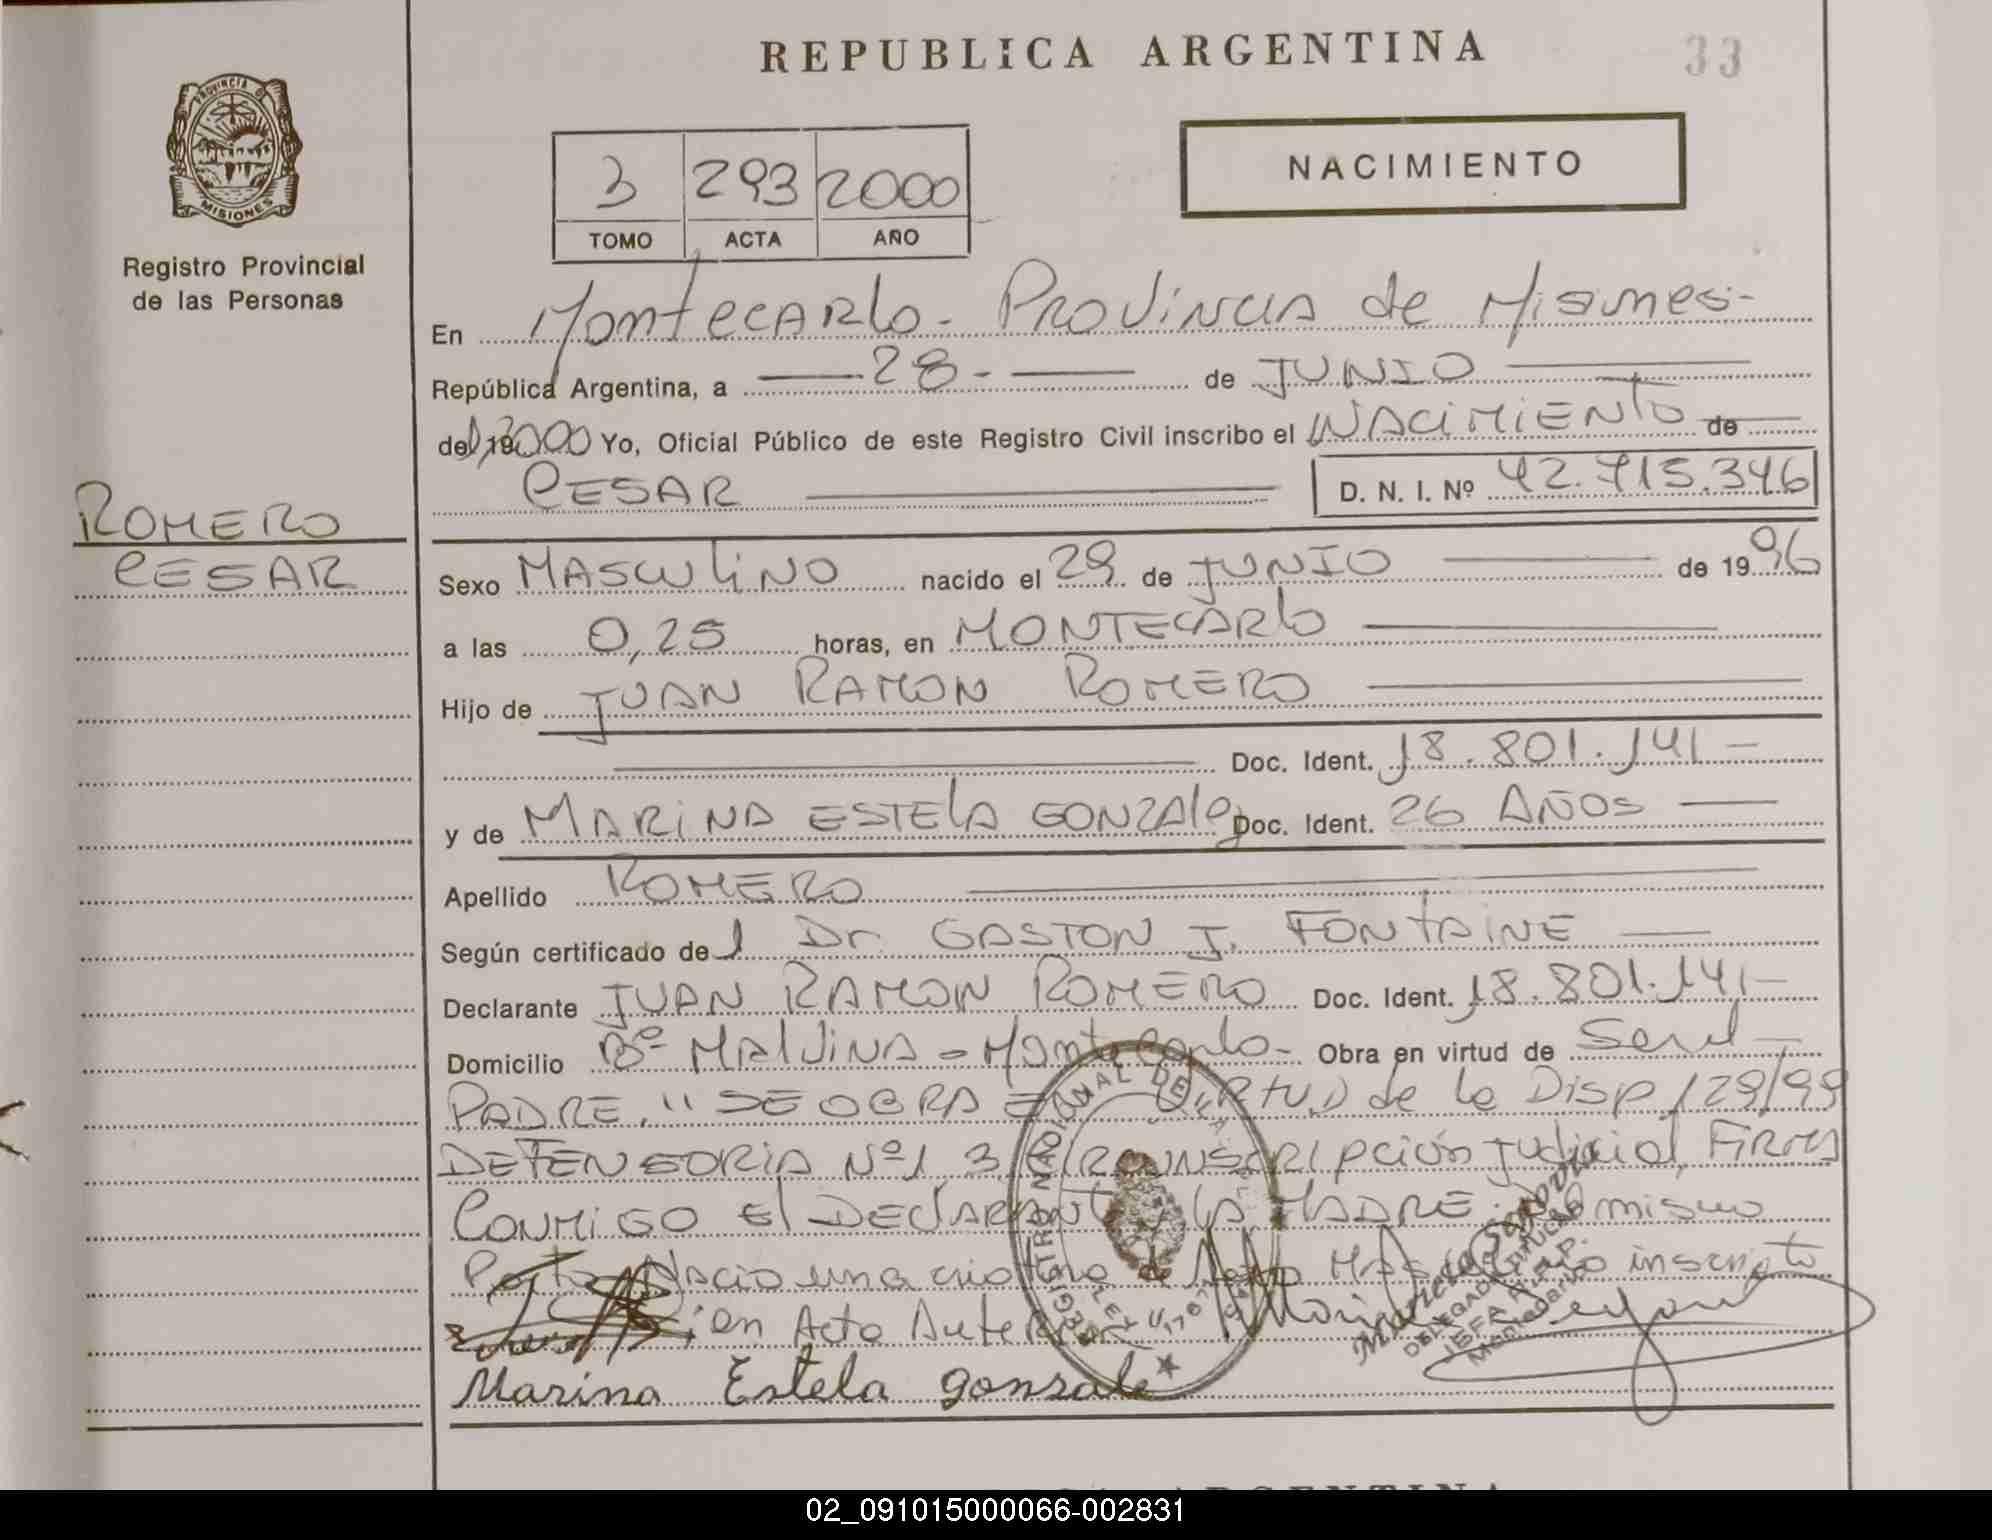 REPUBLICA ARGENTINA
33
PROVINCIA DE
MISIONES
Registro Provincial
de las Personas
3 293 2000
TOMO ACTA AÑO
NACIMIENTO
En Montecarlo - Provincia de Misiones -
República Argentina, a 28 - de JUNIO
del 2000 Yo, Oficial Público de este Registro Civil inscribo el NACIMIENTO de
CESAR D. N. I. Nº 42.715.346
ROMERO
CESAR
Sexo MASCULINO nacido el 29 de JUNIO de 1996
a las 0,25 horas, en MONTECARLO
Hijo de JUAN RAMON ROMERO
Doc. Ident. 18.801.141 -
y de MARINA ESTELA GONZALE Doc. Ident. 26 AÑOS
Apellido ROMERO
Según certificado del Dr. GASTON J. FONTAINE
Declarante JUAN RAMON ROMERO Doc. Ident. 18.801.141 -
Domicilio Bº MALVINA - Montecarlo - Obra en virtud de ser el
PADRE. " SE OBRA EN VIRTUD de la Disp 129/99
DEFENSORIA Nº1 3 CIRCUNSCRIPCIÓN Judicial, FIRMA
CONMIGO El DECLARANTE y LA MADRE. Del mismo
Parto Nacio una criatura de Sexo Masculino inscripto
en Acta Anterior
REGISTRO NACIONAL DE LAS
Marina Estela gonzale
DELEGADA TITULAR
JEFA R.P.P.
Montecarlo
02_091015000066-002831